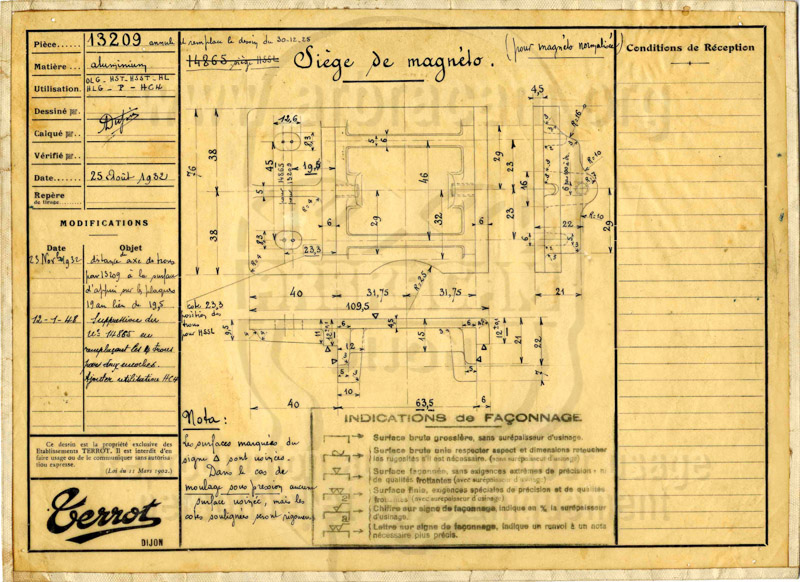 Pièce...... 13209 annule et remplace le dessin du 30-12-25
14865 siège HSSL
Siège de magnéto. (pour magnéto normalisée)
Conditions de Réception
Matière... aluminium
Utilisation. OLG_HST_HSST_HL
HLG_P_HCH
Dessiné par..
Calqué par..
Vérifié par..
Date....... 25 Août 1932
Repère
de tirage.
MODIFICATIONS
Date Objet
23 Nov 1932 distance axe de trous
pour 13209 à la surface
d'appui sur les plaques
19 au lieu de 19,5
12-1-48 Suppression du
n° 14865 en
remplaçant les 4 trous
par deux encoches.
Ajouter utilisation HCH
Ce dessin est la propriété exclusive des
Etablissements TERROT. Il est interdit d'en
faire usage ou de le communiquer sans autorisa-
tion expresse.
(Loi du 11 Mars 1902.)
Terrot
DIJON
12,6
4,5
76
38
38
45
5
8,3
19,5
14865
13209
23,3
5
6
46
29
32
6
29
23
16
23
R=15
R=10
R=10
22
29
21
R=25
cote 23,3
position des
trous
pour HSSL
40
31,75
31,75
109,5
9,5
11
12
15
12
21
22
7
10
40
63,5
6
Nota:
Les surfaces marquées du
signe ∆ sont usinées.
Dans le cas de
moulage sous pression aucune
surface usinée, mais les
cotes soulignées seront rigoureuses
INDICATIONS de FAÇONNAGE
Surface brute grossière, sans surépaisseur d'usinage.
Surface brute unie respecter aspect et dimensions retoucher
les rugosités s'il est nécessaire. (sans surépaisseur d'usinage)
Surface façonnée, sans exigences extrêmes de précision ni
de qualités frottantes (avec surépaisseur d'usinage)
Surface finie, exigences spéciales de précision et de qualités
frottantes (avec surépaisseur d'usinage)
Chiffre sur signe de façonnage, indique en % la surépaisseur
d'usinage.
Lettre sur signe de façonnage, indique un renvoi à un nota
nécessaire plus précis.